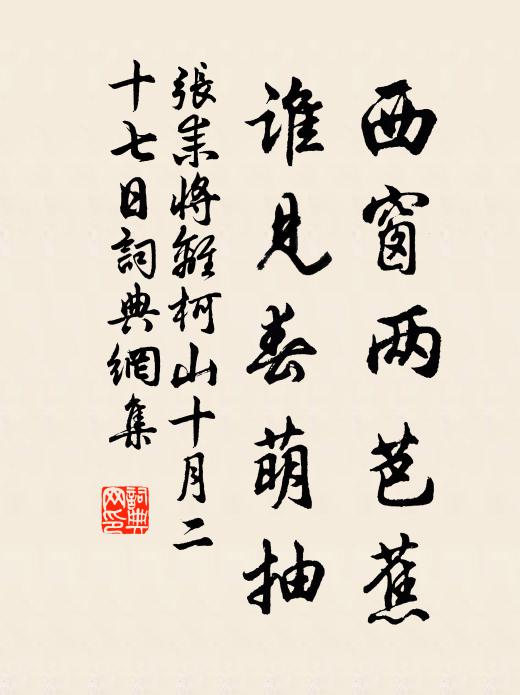 西窗两芭蕉
谁見春萌抽
張耒将離柯山十月二
十七日詞典網集
詞典网印